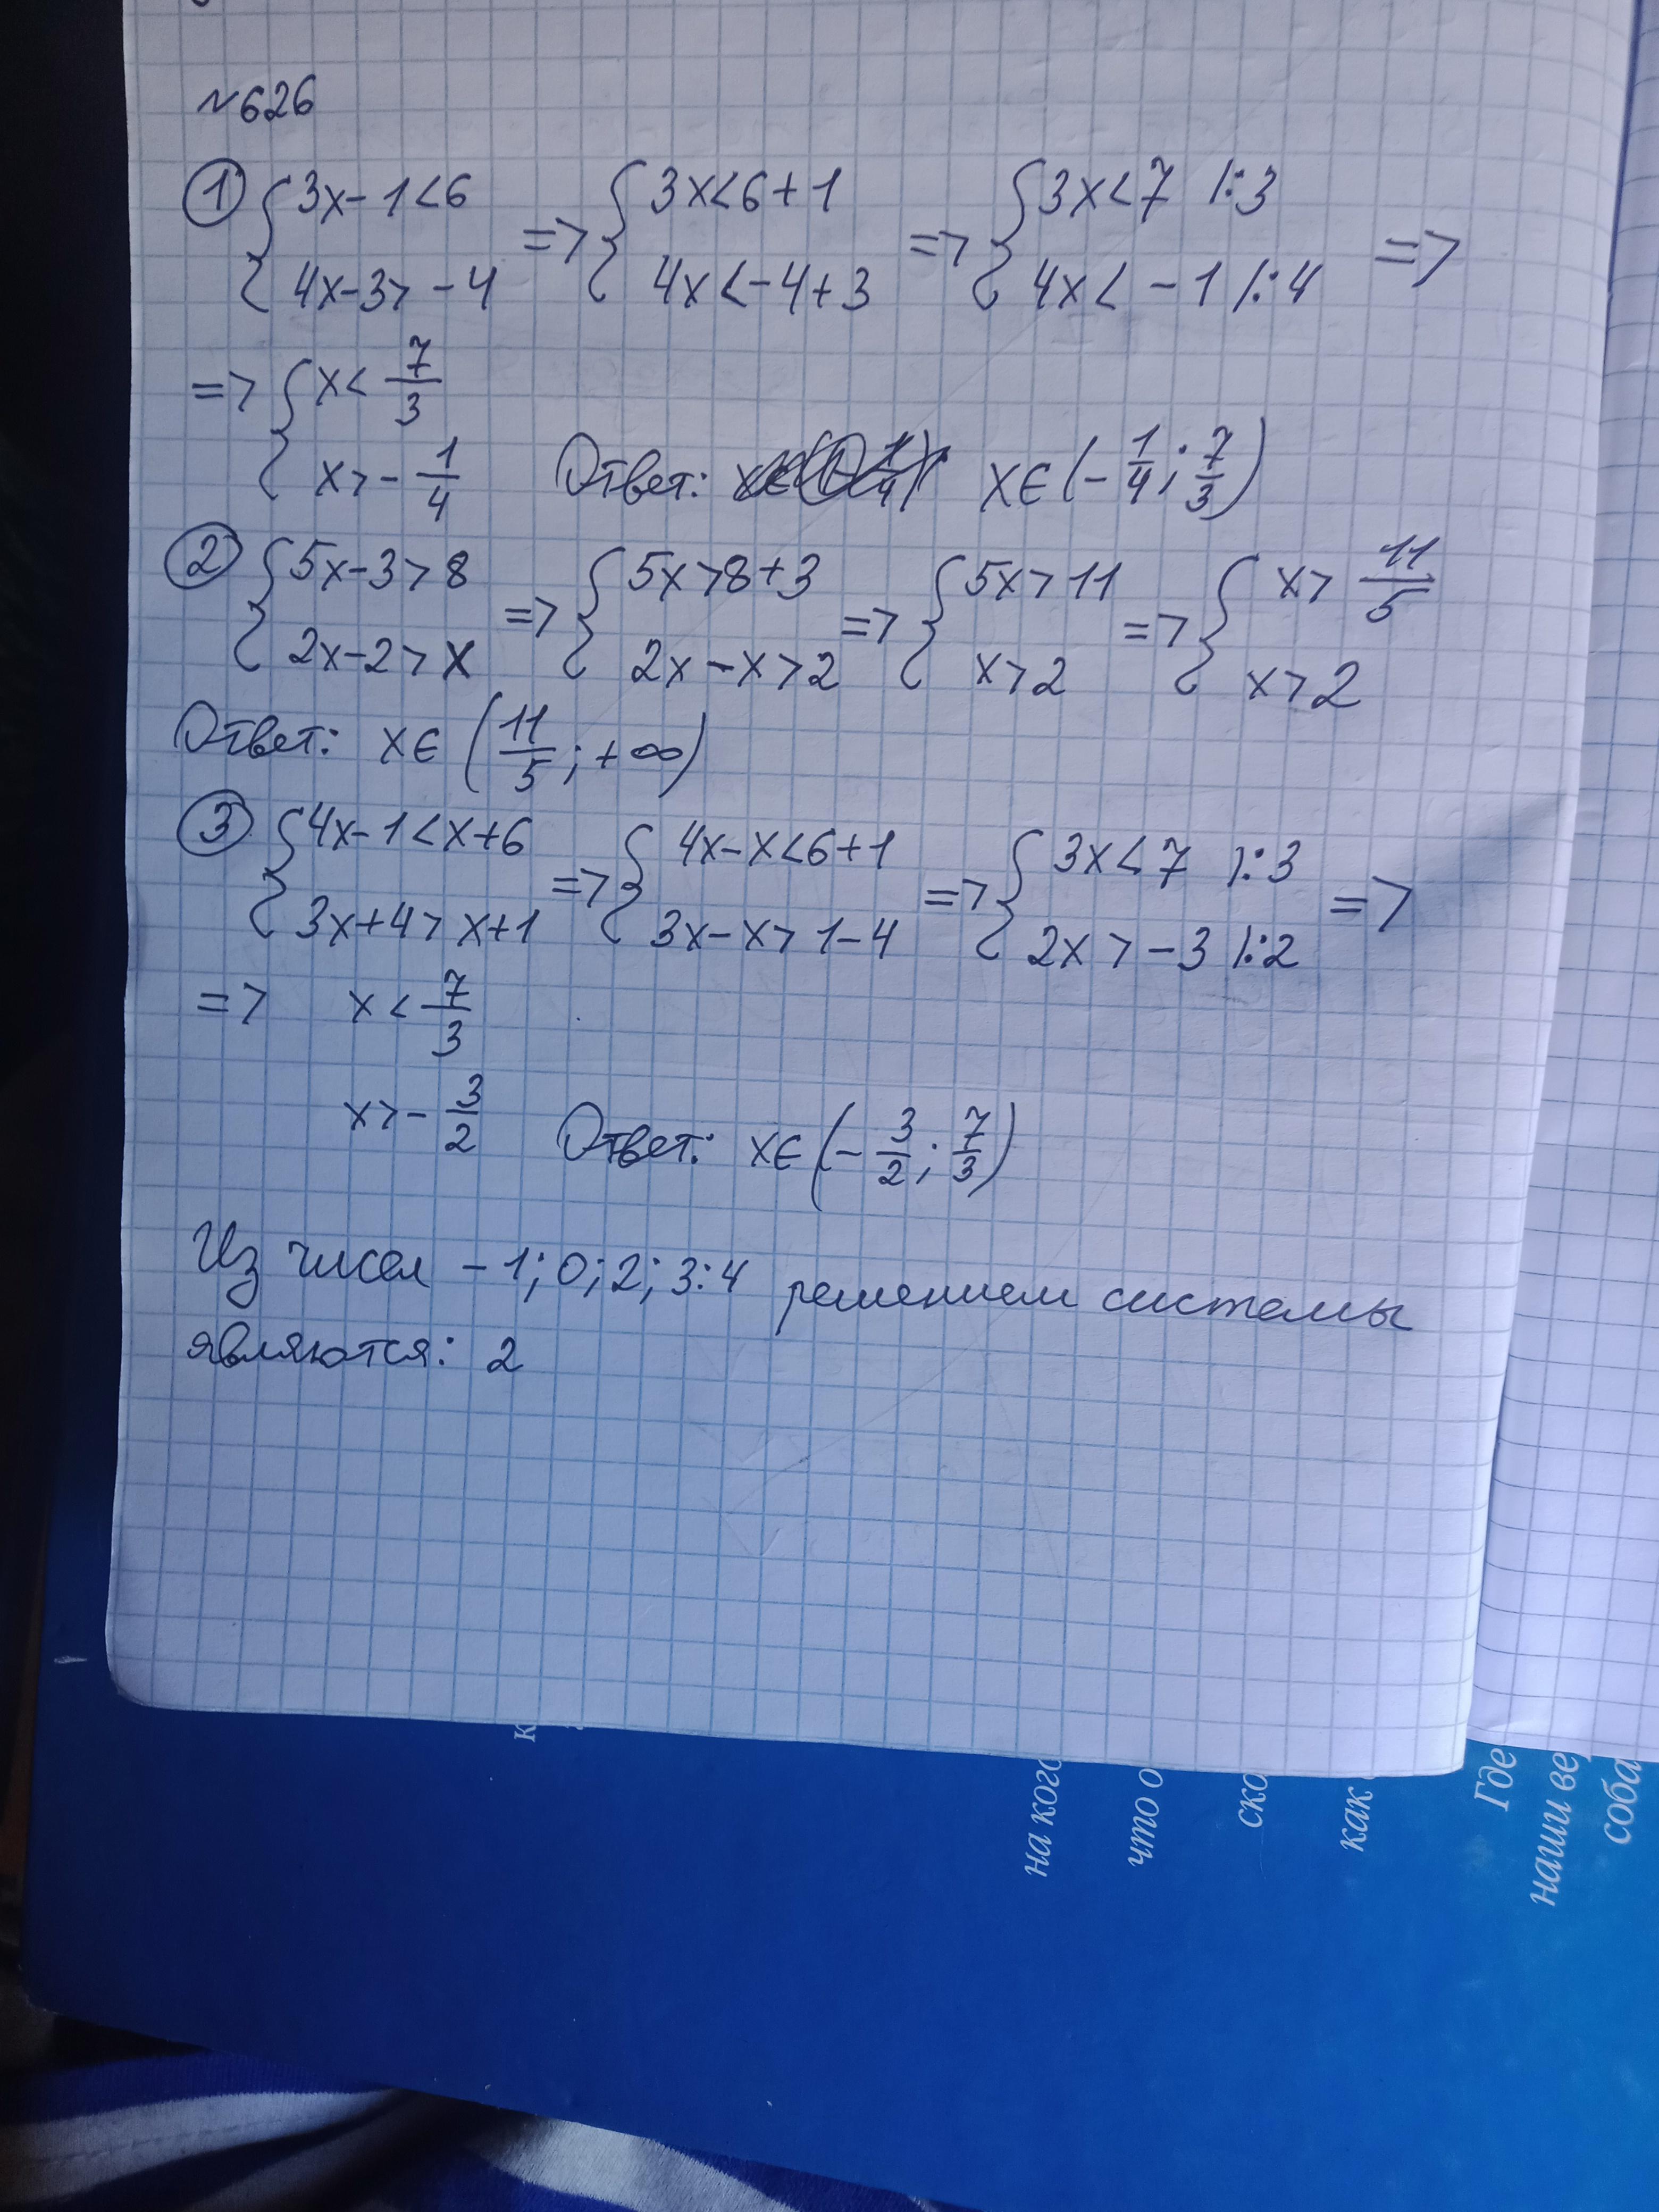 №626
① { 3x-1<6 => { 3x<6+1 => { 3x<7 |:3 =>
4x-3>-4 4x<-4+3 4x<-1 |:4
=> { x< 7/3
x>- 1/4 Ответ: x∈(-1/4; 7/3)
② { 5x-3>8 => { 5x>8+3 => { 5x>11 => { x> 11/5
2x-2>x 2x-x>2 x>2 x>2
Ответ: x∈(11/5; +∞)
③ { 4x-1<x+6 => { 4x-x<6+1 => { 3x<7 |:3 =>
3x+4>x+1 3x-x>1-4 2x>-3 |:2
=> x< 7/3
x>- 3/2 Ответ: x∈(-3/2; 7/3)
Из чисел -1; 0; 2; 3:4 решением системы
являются: 2
на кого
что о
ско
как
Где
наши ве
соба